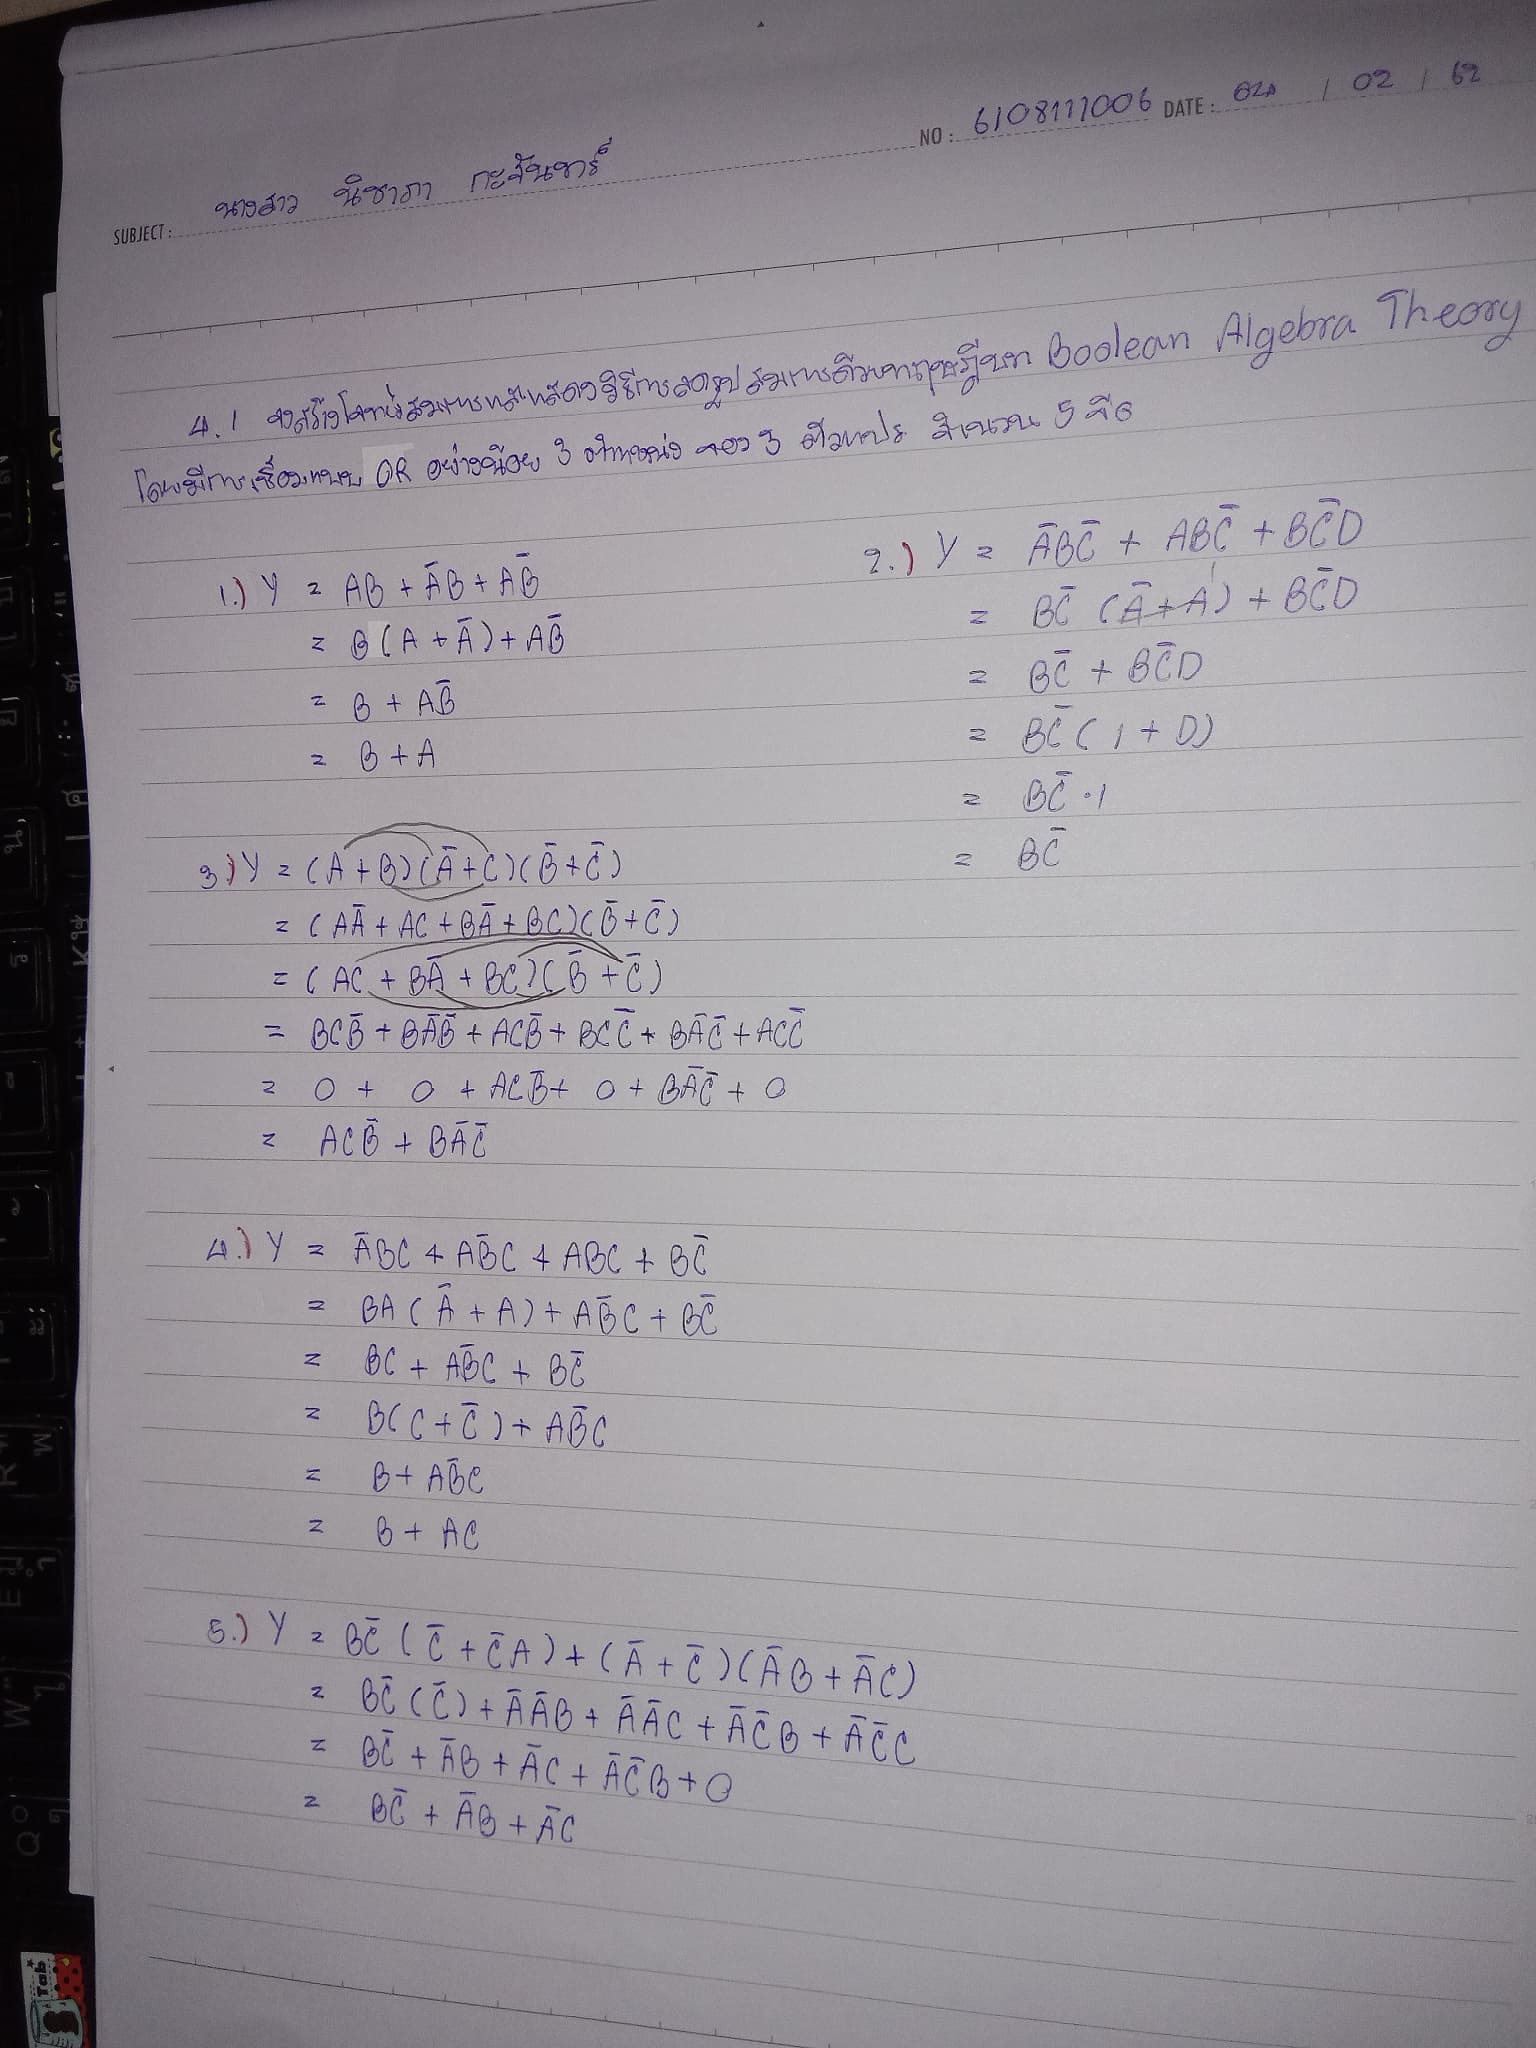 NO : 6108111006 DATE : 02 / 02 / 62
SUBJECT : นางสาว นิชาภา กะจันทร์
4.1 จงสร้างโจทย์สมการและแสดงวิธีการลดรูปสมการด้วยทฤษฎีบท Boolean Algebra Theory
โดยมีการเชื่อมแบบ OR อย่างน้อย 3 ตำแหน่ง ของ 3 ตัวแปร จำนวน 5 ข้อ
1.) Y = AB + A̅B + AB̅
= B(A + A̅) + AB̅
= B + AB̅
= B + A
2.) Y = A̅BC̅ + ABC̅ + BC̅D
= BC̅ (A̅ + A) + BC̅D
= BC̅ + BC̅D
= BC̅ (1 + D)
= BC̅ · 1
= BC̅
3) Y = (A + B)(A̅ + C)(B̅ + C̅)
= (AA̅ + AC + BA̅ + BC)(B̅ + C̅)
= (AC + BA̅ + BC)(B̅ + C̅)
= BCB̅ + BA̅B̅ + ACB̅ + BCC̅ + BA̅C̅ + ACC̅
= 0 + 0 + ACB̅ + 0 + BA̅C̅ + 0
= ACB̅ + BA̅C̅
4.) Y = A̅BC + AB̅C + ABC + BC̅
= BA (A̅ + A) + AB̅C + BC̅
= BC + AB̅C + BC̅
= B(C + C̅) + AB̅C
= B + AB̅C
= B + AC
5.) Y = BC̅ (C̅ + C̅A) + (A̅ + C̅)(A̅B + A̅C)
= BC̅ (C̅) + A̅A̅B + A̅A̅C + A̅C̅B + A̅C̅C
= BC̅ + A̅B + A̅C + A̅C̅B + 0
= BC̅ + A̅B + A̅C
Tab